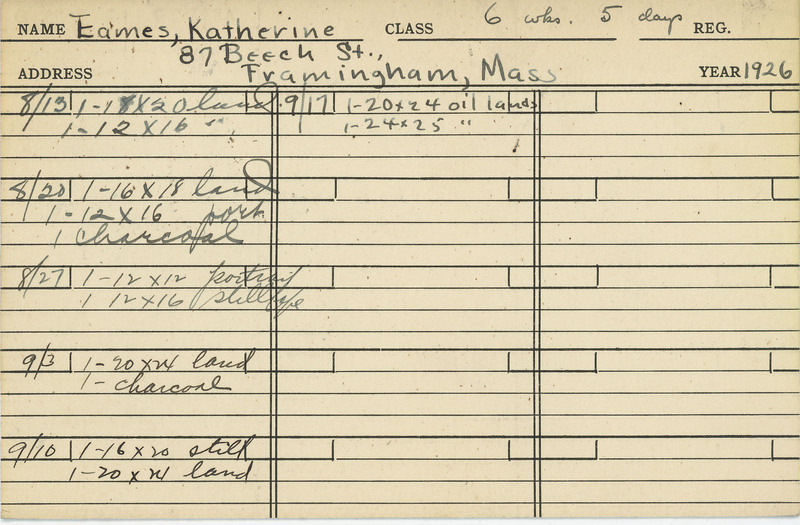 NAME Eames, Katherine CLASS 6 wks. 5 days REG.
87 Beech St.,
ADDRESS Framingham, Mass YEAR 1926
8/13 1-18x20 land
1-12 x16 "
8/20 1-16 x 18 land
1-12 x 16 port.
1 charcoal
8/27 1-12 x12 portrait
1 12x16 still life
9/3 1-20 x 24 land
1- charcoal
9/10 1-16 x 20 still
1-20 x 24 land
9/17 1-20x24 oil lands
1-24x25 "